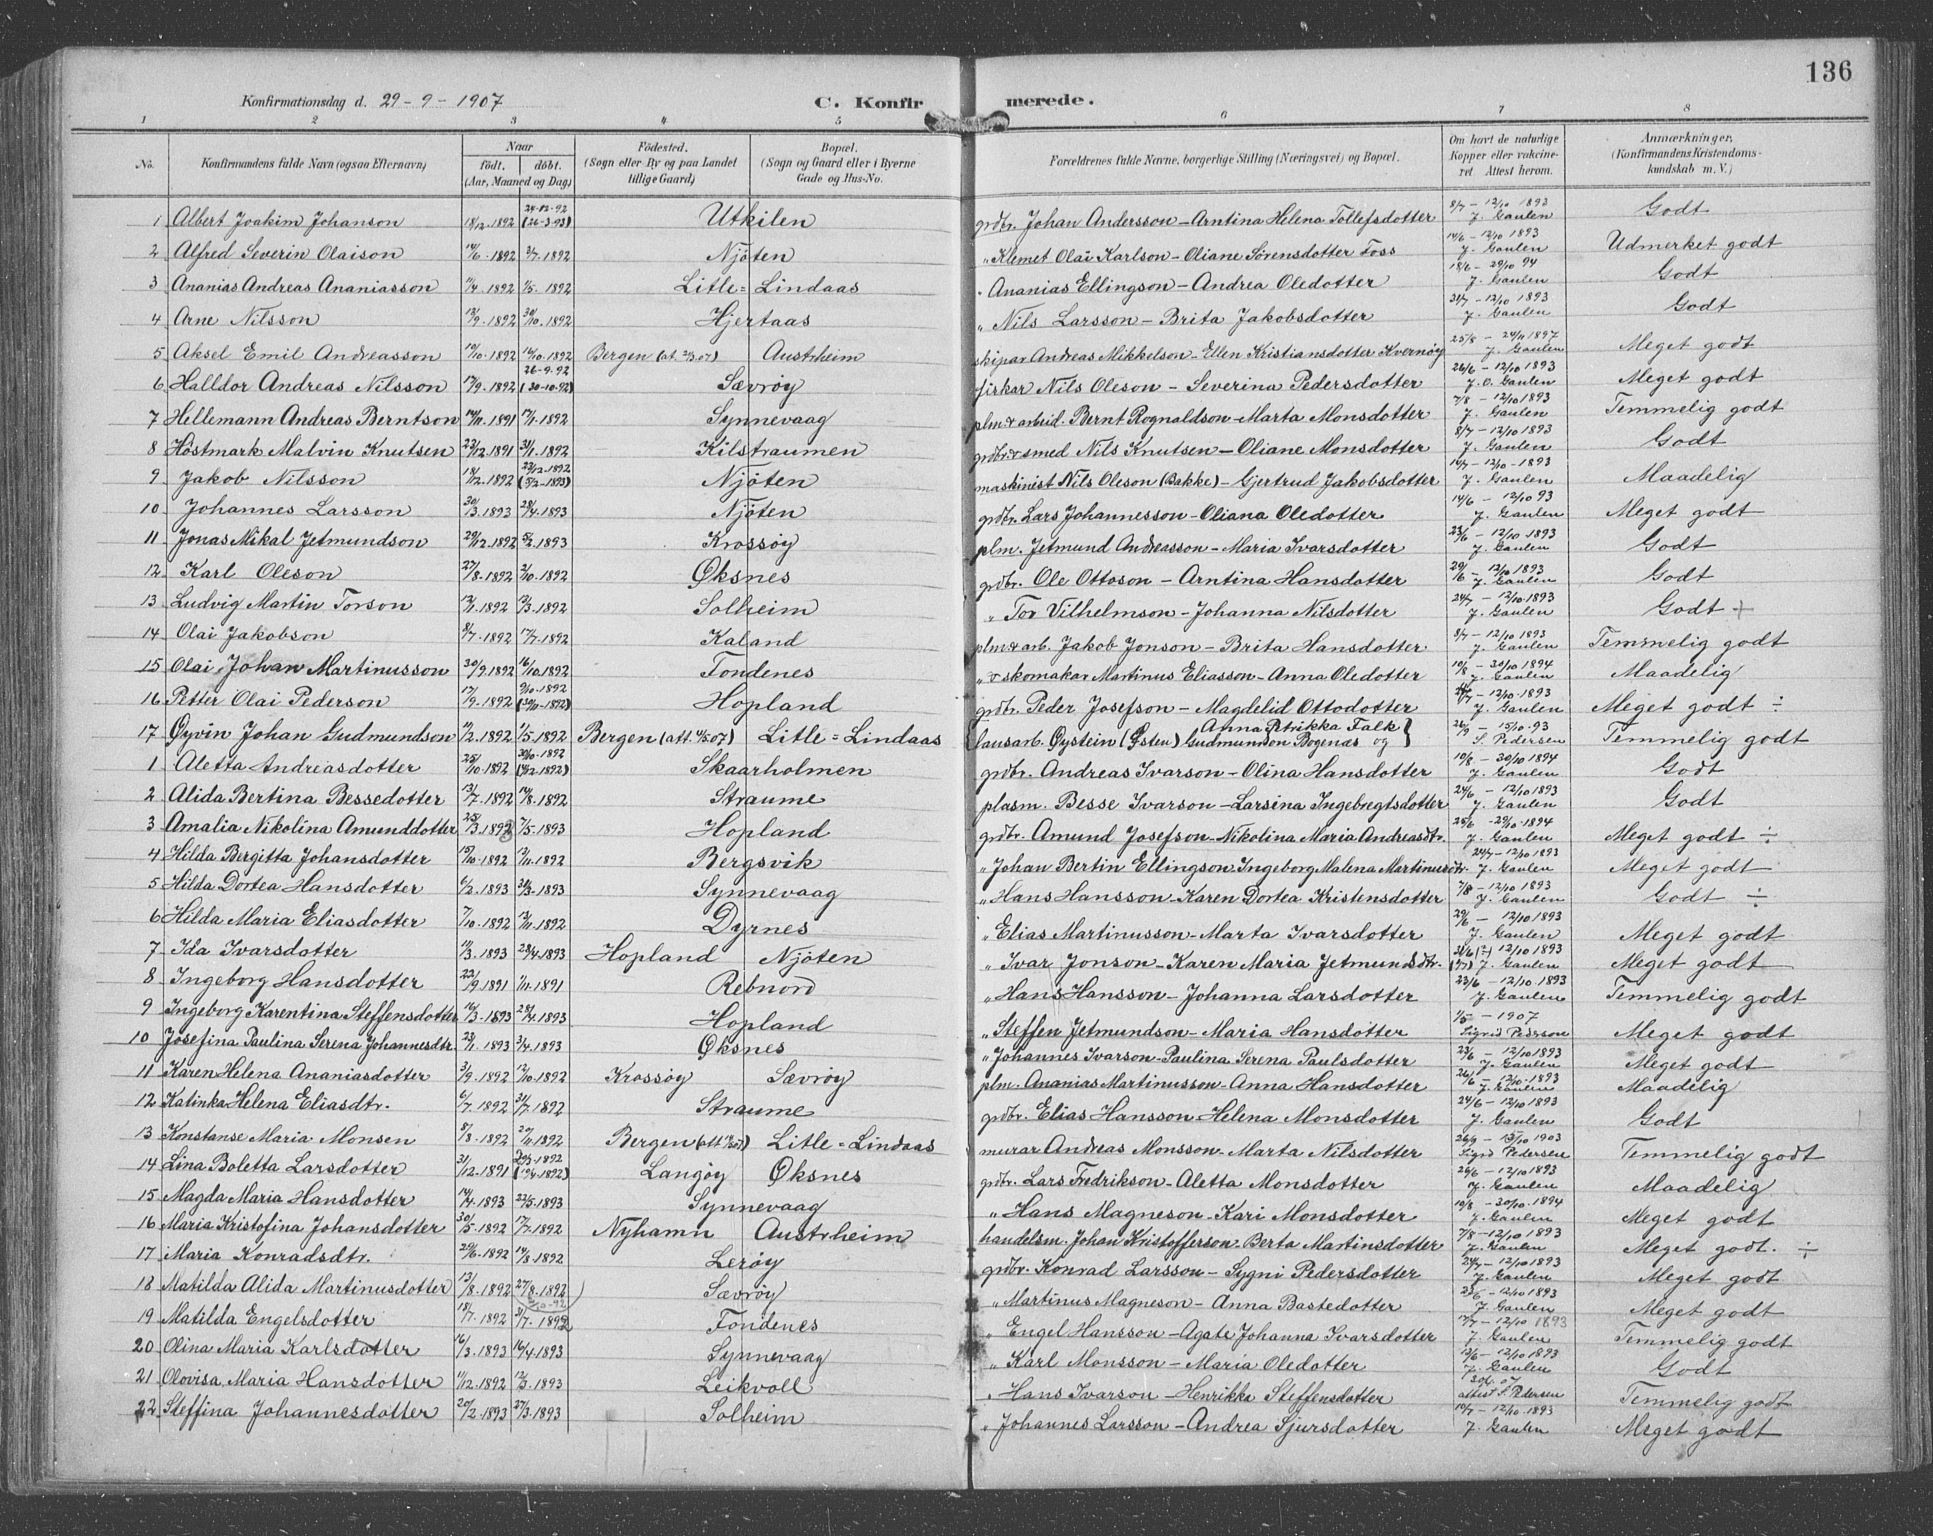 136
Konfirmationsdag d. 29-9-1907 C. Konfirmerede.
1 2 3 4 5 6 7 8
No. Konfirmandens fulde Navn (ogsaa Efternavn) Naar født. døbt. (Aar, Maaned og Dag) Fødested. (Sogn eller By og paa Landet tillige Gaard) Bopæl. (Sogn og Gaard eller i Byerne Gade og Hus-No. Forældrenes fulde Navne, borgerlige Stilling (Næringsvei) og Bopæl. Om havt de naturlige Kopper eller vakcineret Attest herom. Anmærkninger, (Konfirmandens Kristendomskundskab m. V.)
1 Albert Joakim Johanson 18/12.1892 24-12-92 (26-3-93) Utkilen grdbr. Johan Andersson - Arntina Helena Tollefsdotter 8/7 - 12/10 1893 J. Gaulen Godt
2 Alfred Severin Olaison 14/6.1892 3/7.1892 Njøten " Klemet Olai Karlson - Oliane Sørensdotter Foss 14/6 - 12/10 1893 J. Gaulen Udmerket godt
3 Ananias Andreas Ananiasson 11/4.1892 1/5.1892 Litle-Lindaas " Ananias Ellingson - Andrea Oledotter 18/6 - 29/10 94 J. Gaulen Godt
4 Arne Nilsson 12/9.1892 30/10.1892 Hjertaas " Nils Larsson - Brita Jakobsdotter 24/7 - 12/10 1893 J. Gaulen Godt
5 Aksel Emil Andreasson 10/10.1892 16/10.1892 Bergen (at. 2/3.07) Austrheim skipar Andreas Mikkelson - Ellen Kristiansdotter Kvernøy 25/8 - 24/11 1897 J. Gaulen Meget godt
6 Halldor Andreas Nilsson 17/9.1892 26-9-92 (30-10-92) Sævrøy fiskar Nils Oleson - Severina Pedersdotter 26/6 - 12/10 1893 J. O. Gaulen Meget godt
7 Hellemann Andreas Berntson 14/11.1891 17/1.1892 Synnevaag plm. & arbeid. Bernt Rognaldson - Marta Monsdotter 7/8 - 12/10 1893 J. Gaulen Temmelig godt
8 Høstmark Malvin Knutsen 23/12.1891 31/1.1892 Kilstraumen grdbr. & smed Nils Knutsen - Oliane Monsdotter 8/7 - 12/10 1893 J. Gaulen Godt
9 Jakob Nilsson 18/12.1892 27/12.1892 (5/2-1893) Njøten maskinist Nils Oleson (Bakke) - Gjertrud Jakobsdotter 14/7 - 12/10-1893 J. Gaulen Maadelig
10 Johannes Larsson 30/3.1893 28/4.1893 Njøten grdbr. Lars Johannesson - Oliana Oledotter 14/6 - 12/10 93 J. Gaulen Meget godt
11 Jonas Mikal Jetmundson 29/12.1892 5/2.1893 Krossøy plm. Jetmund Andreasson - Maria Ivarsdotter 23/6 - 12/10 1893 J. Gaulen Godt
12 Karl Oleson 27/8.1892 2/10.1892 Øksnes grdbr. Ole Ottoson - Arntina Hansdotter 29/6 - 12/10 1893 J. Gaulen Godt
13 Ludvig Martin Torson 12/1.1892 12/3.1892 Solheim " Tor Vilhelmson - Johanna Nilsdotter 24/7 - 12/10.1893 J. Gaulen Godt +
14 Olai Jakobson 8/7.1892 17/7.1892 Kaland plm & arb. Jakob Jonson - Brita Hansdotter 8/7 - 12/10 1893 J. Gaulen Temmelig godt
15 Olai Johan Martinusson 30/9.1892 16/10.1892 Fondenes " & skomakar Martinus Eliasson - Anna Oledotter 10/8 - 30/10 1894 J. Gaulen Maadelig
16 Petter Olai Pederson 17/9.1892 9/10-1892 (30/11-1892) Hopland grdbr. Peder Josefson - Magdelid Ottodotter 24/7 - 12/10 1893 J. Gaulen Meget godt ÷
17 Øyvin Johan Gudmundson 11/2.1892 1/5.1892 Bergen (att. 4/5.07) Litle-Lindaas lausarb. Øystein (Østen) Gudmundson Bogenæs og Anna Petrikka Falk } 26/9 - 15/10-93 S. Pedersen Temmelig godt
1 Aletta Andreasdotter 25/10.1892 30/10.1892 (4/12.1892) Skaarholmen grdbr. Andreas Ivarson - Olina Hansdotter 10/8 - 30/10 1894 J. Gaulen Godt
2 Alida Bertina Bessedotter 13/7.1892 14/8.1892 Straume plasm. Besse Ivarson - Larsina Ingebregtsdotter 24/6 - 12/10 1893 J. Gaulen Godt
3 Amalia Nikolina Amunddotter 25/3.1893 7/5.1893 Hopland grdbr. Amund Josefson - Nikolina Maria Andreasdtr. 25/6 - 29/10.1894 J. Gaulen Meget godt ÷
4 Hilda Bergitta Johansdotter 15/10.1892 13/11.1892 Bergsvik " Johan Bertin Ellingson Ingeborg Malena Martinusdtr 24/7 - 12/10 1893 J. Gaulen Meget godt
5 Hilda Dortea Hansdotter 6/2.1893 31/3.1893 Synnevaag " Hans Hansson - Karen Dortea Kristensdotter 7/8 - 12/10 1893 J. Gaulen Godt ÷
6 Hilda Maria Eliasdotter 7/10.1892 13/11.1892 Dyrnes " Elias Martinusson - Marta Ivarsdotter 29/6 - 12/10 1893 J. Gaulen Meget godt
7 Ida Ivarsdotter 11/3.1893 28/4.1893 Hopland Njøten " Ivar Jonson - Karen Maria Jetmundsdtr. J. Gaulen Meget godt
8 Ingeborg Hansdotter 22/9.1891 1/11.1891 Rebnord " Hans Hansson - Johanna Larsdotter 23/6 - 12/10.1893 J. Gaulen Temmelig godt
9 Ingeborg Karentina Steffensdotter 16/3.1893 28/4.1893 Hopland " Steffen Jetmundson - Maria Hansdotter 1/5 - 1907 Sigrid Pederson Meget godt
10 Josefina Paulina Serena Johannesdtr. 23/1.1893 3/4.1893 Øksnes " Johannes Ivarson - Paulina Serena Paulsdotter 23/6 - 12/10 1893 J. Gaulen Meget godt
11 Karen Helena Ananiasdotter 3/9.1892 17/10.1892 Krossøy Sævrøy plm. Ananias Martinusson - Anna Hansdotter 26/6 - 12/10.1893 J. Gaulen Maadelig
12 Katinka Helena Eliasdtr. 6/7.1892 31/7.1892 Straume grdbr. Elias Hansson - Helena Monsdotter 24/6 - 12/10 1893 J. Gaulen Godt
13 Konstanse Maria Monsen 8/8.1892 20/11.1892 Bergen Litle-Lindaas murar Andreas Monsson - Marta Nilsdotter 26/9 - 15/10 1903 Sigrd Pedersen Temmelig godt
14 Lina Boletta Larsdotter 31/12.1891 20/3.1892 (10/4.1892) Langøy Øksnes grdbr. Lars Fredrikson - Aletta Monsdotter 26/6 - 12/10 1893 J. Gaulen Maadelig
15 Magda Maria Hansdotter 14/4.1893 22/5.1893 Synnevaag " Hans Magneson - Kari Monsdotter 10/8 - 30/10.1894 J. Gaulen Meget godt
16 Maria Kristofina Johansdotter 30/5.1892 17/7.1892 Nyhamn Austrheim handelsm. Johan Kristofferson - Berta Martinsdotter 7/8 - 12/10 1893 J. Gaulen Meget godt. ÷
17 Maria Konradsdtr. 20/6.1892 14/8.1892 Lerøy grdbr. Konrad Larsson - Sygni Pedersdotter 24/7 - 12/10 1893 J. Gaulen Meget godt
18 Matilda Alida Martinusdotter 13/8.1892 27/8.1892 Sævrøy " Martinus Magneson - Anna Bastedotter 23/6 - 12/10 1893 J. Gaulen Meget godt
19 Matilda Engelsdotter 18/7.1892 31/7.1892 Fondenes " Engel Hansson - Agate Johanna Ivarsdotter 17/7 - 12/10 1893 J. Gaulen Temmelig godt
20 Olina Maria Karlsdotter 16/3.1893 16/4.1893 Synnevaag " Karl Monsson - Maria Oledotter 12/6 - 12/10 1893 J. Gaulen Godt
21 Olovisa Maria Hansdotter 11/12.1892 12/3.1893 Leikvoll " Hans Ivarson - Henrikke Steffensdotter attest S. Pedersen Temmelig godt
22 Steffina Johannesdotter 20/2.1893 27/3.1893 Solheim " Johannes Larsson - Andrea Sjursdotter 10/7 - 12/10.1893 J. Gaulen Meget godt